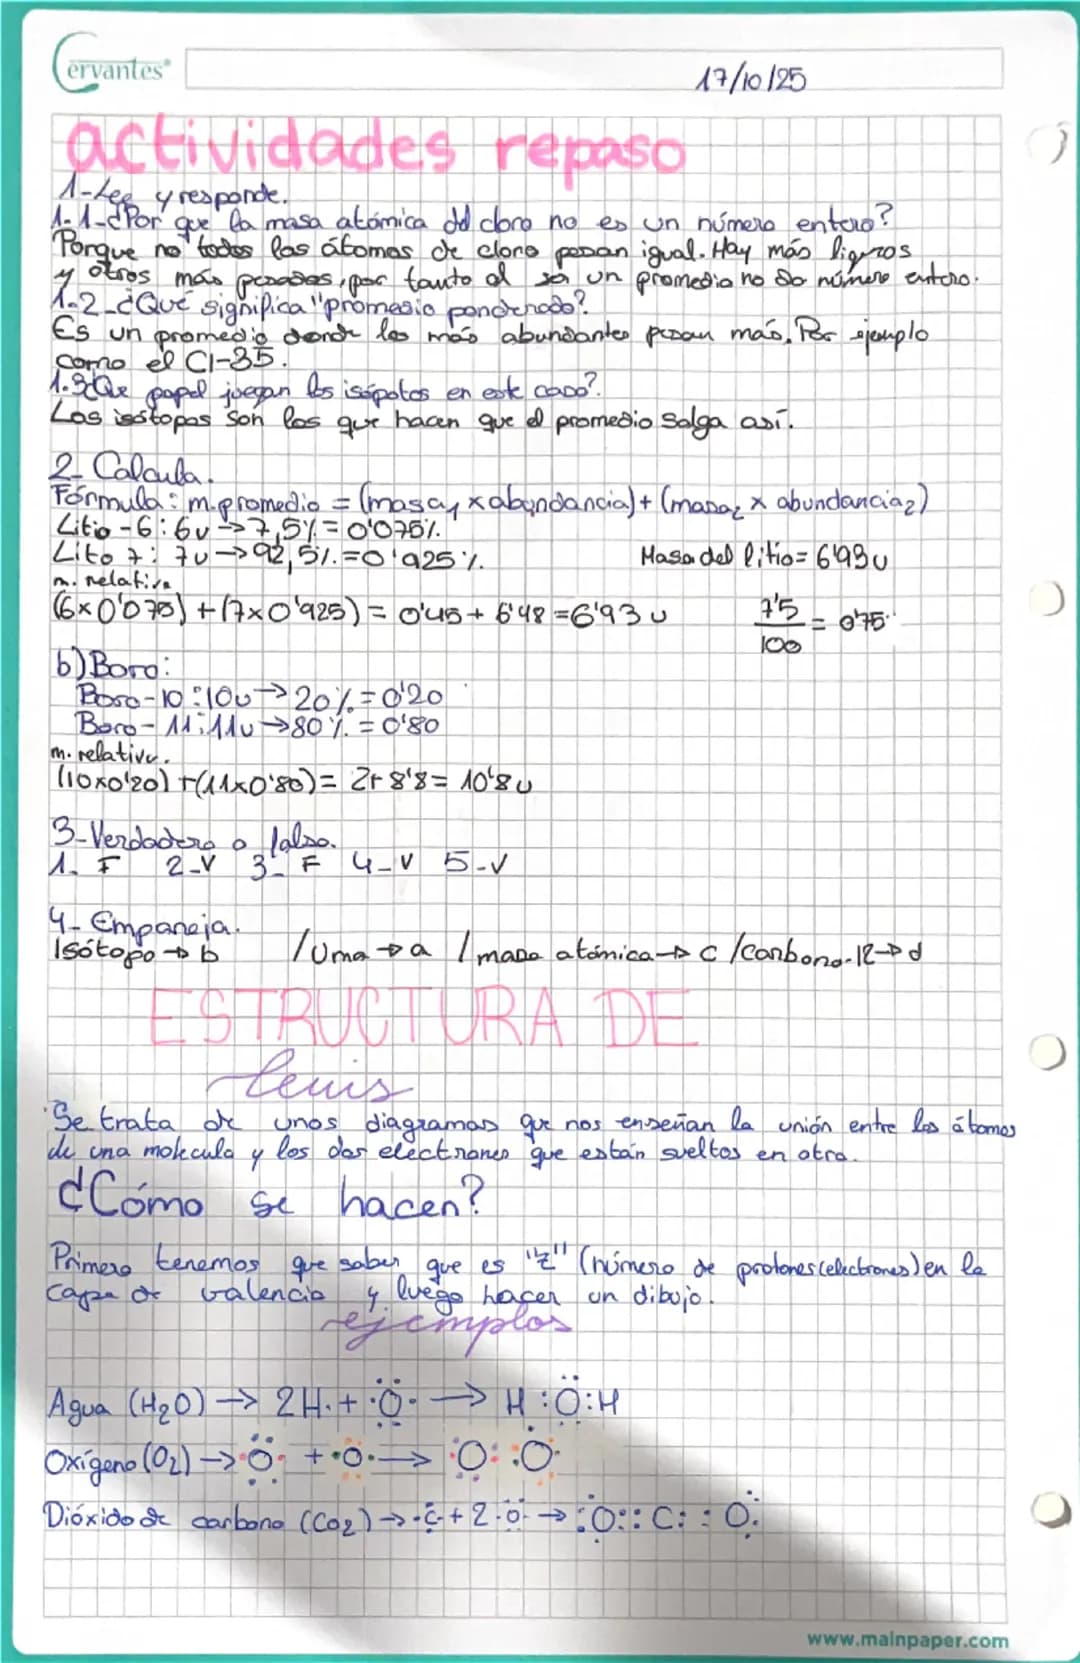 Cervantes®
17/10/25
actividades repaso
1-Lee y responde.
1.1-¿Por que la masa atómica del cloro no es un número entero?
Porque no todos los átomos de cloro pesan igual. Hay más ligeros
y otros más pesados, por tanto al ser un promedio no da número entero.
1.2-¿Qué significa "promedio ponderado?
Es un promedio donde los más abundantes pesan más. Por ejemplo
como el Cl-35.
1.3¿Que papel juegan los isópotos en este caso?
Los isótopos son los que hacen que el promedio salga así.
2- Calcula.
Fórmula: m.promedio = (masa₁ x abundancia) + (masa₂ x abundancia₂)
Litio -6: 6u -> 7,5% = 0'075%.
Lito 7: 7u -> 92,5%.=0'925%.
Masa del litio= 6'93u
m. relativa
(6x0'075) + (7x0'925) = 0'45 + 6'48 = 6'93 u
7'5/100 = 0'75
b) Boro:
Boro-10: 10u -> 20% = 0'20
Boro-11: 11u -> 80% = 0'80
m. relativa.
(10x0'20) + (11x0'80) = 2+ 8'8 = 10'8u
3-Verdadero o falso.
1. F 2-V 3- F 4-V 5-V
4- Empareja.
Isótopo → b / Uma → a / masa atómica → c / carbono-12 → d
ESTRUCTURA DE
lewis
Se trata de unos diagramas que nos enseñan la unión entre los átomos
de una molecula y los dos electrones que están sueltos en otra.
¿Cómo se hacen?
Primero tenemos que saber que es "Z" (número de protones(electrones) en la
capa de valencia y luego hacer un dibujo.
ejemplos
Agua (H₂O) → 2H· + ·Ö· → H:Ö:H
Oxígeno (O₂) → ·Ö· + ·O· → :O: :O:
Dióxido de carbono (CO₂) → ·C· + 2·O· → :O::C::O:
www.mainpaper.com